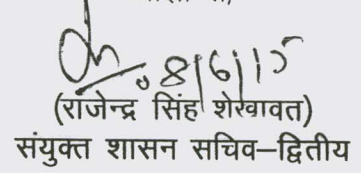 8/6/15
(राजेन्द्र सिंह शेखावत)
संयुक्त शासन सचिव–द्वितीय